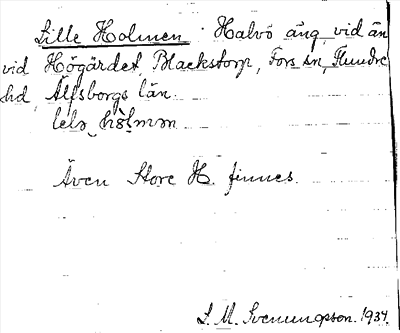 Lille Holmen. Halvö äng vid ån
vid Högärdet, Blackstorp, Fors sn, Flundre
hd, Älfsborgs län.
lelə hòlmən
Även Store H. finnes.
S. M. Svenungsson. 1934.